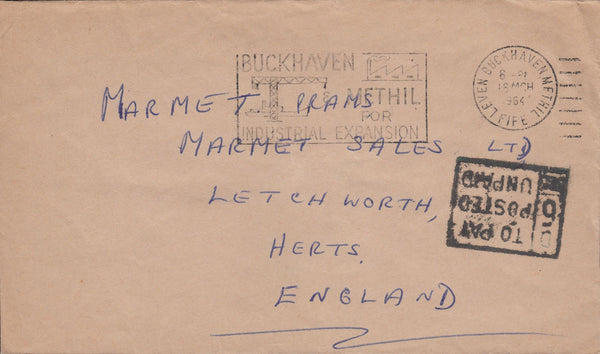 BUCKHAVEN
& METHIL
FOR
INDUSTRIAL EXPANSION
LEVEN BUCKHAVEN METHIL
6 - PM
18 MCH
1964
FIFE
MARMET PRAMS
MARMET SALES LTD
LETCHWORTH,
HERTS.
ENGLAND
TO PAY
POSTED
UNPAID
6D